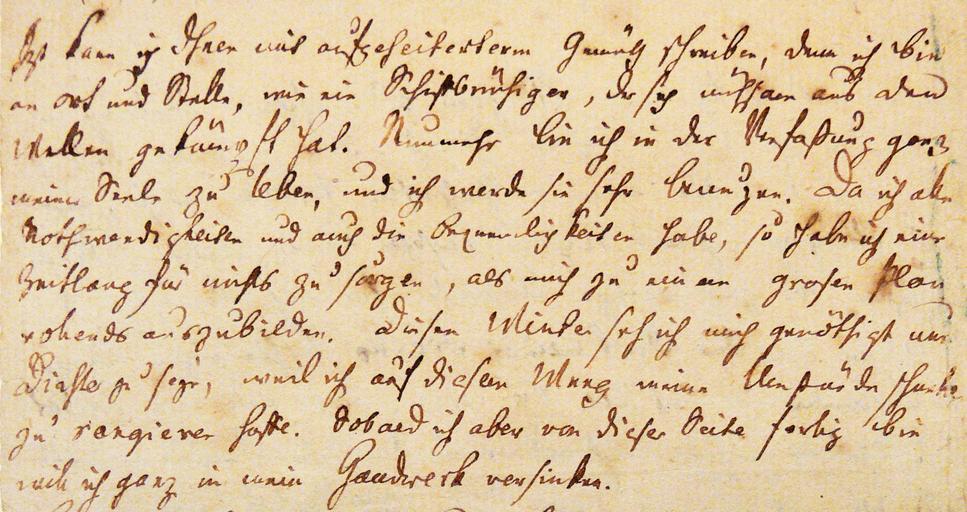 Jezt kann ich Ihnen mit aufgeheiterterem Gemüth schreiben, denn ich bin
an Ort und Stelle, wie ein Schiffbrüchiger, der sich mühsam aus den
Wellen gekämpft hat. Nunmehr bin ich in der Verfaßung ganz
meiner Seele zu leben, und ich werde sie sehr benuzen. Da ich alle
Nothwendigkeiten und auch die Bequemlichkeiten habe, so habe ich eine
Zeitlang für nichts zu sorgen, als mich zu einem grosen Plan
vollends auszubilden. Diesen Winter seh ich mich genöthigt nur
Dichter zu seyn, weil ich auf diesem Weeg meine Umstände schneller
zu rangieren hoffe. Sobald ich aber von dieser Seite fertig bin
will ich ganz in mein Handwerk versinken.